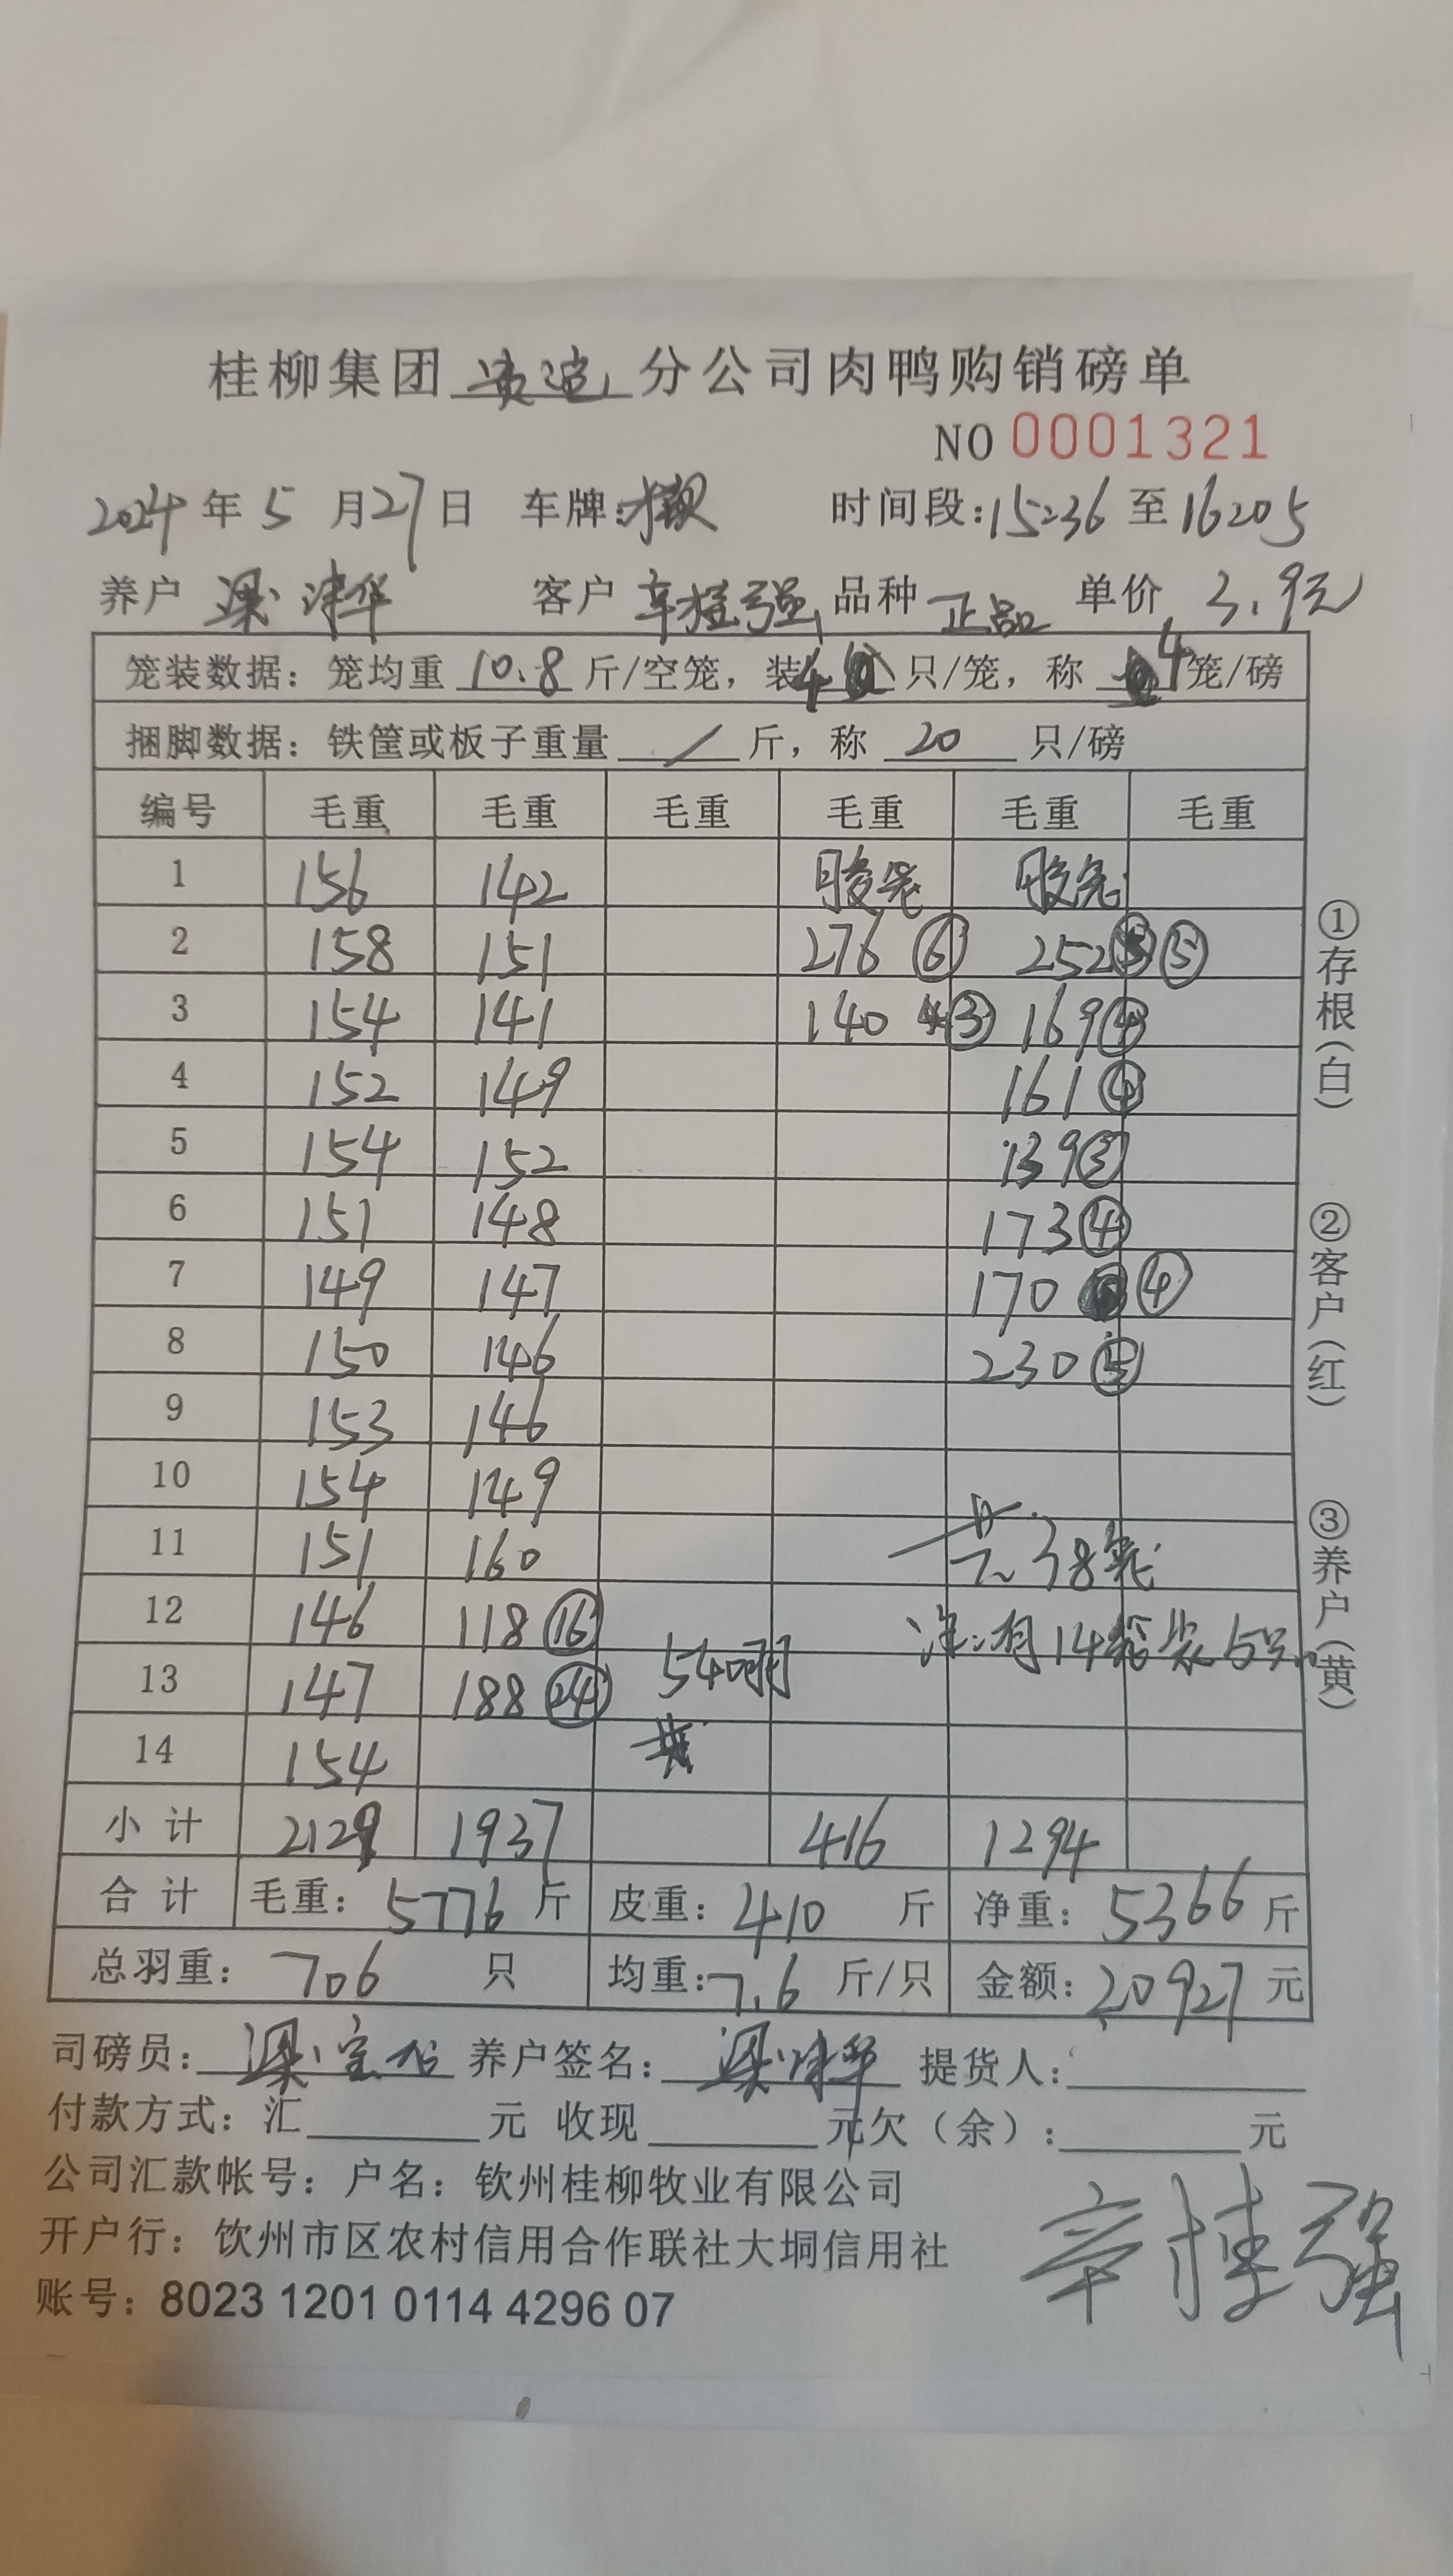 桂柳集团 分公司肉鸭购销磅单
NO 0001321
2024 年 5 月 27 日 车牌: 时间段: 15:36 至 16:05
养户 梁 华 客户 辛桂强 品种 正品 单价 3.9元
笼装数据: 笼均重 10.8 斤/空笼, 装 4 只/笼, 称 4 笼/磅
捆脚数据: 铁筐或板子重量 / 斤, 称 20 只/磅
编号 毛重 毛重 毛重 毛重 毛重 毛重
1 156 142 胶笼 胶笼
2 158 151 276 ⑥ 252 ⑤
3 154 141 140 ③ 169 ④
4 152 149 161 ④
5 154 152 139 ③
6 151 148 173 ④
7 149 147 170 ④
8 150 146 230 ⑤
9 153 146
10 154 149
11 151 160 共38笼
12 146 118 ⑯ 注:有14笼装5只
13 147 188 ㉔ 540
14 154
小计 2129 1937 416 1294
合计 毛重: 5776 斤 皮重: 410 斤 净重: 5366 斤
总羽重: 706 只 均重: 7.6 斤/只 金额: 20927 元
司磅员: 梁宝 养户签名: 梁 华 提货人:
付款方式: 汇 元 收现 元欠(余): 元
公司汇款帐号: 户名: 钦州桂柳牧业有限公司
开户行: 饮州市区农村信用合作联社大垌信用社
账号: 8023 1201 0114 4296 07
辛桂强
①存根(白)
②客户(红)
③养户(黄)